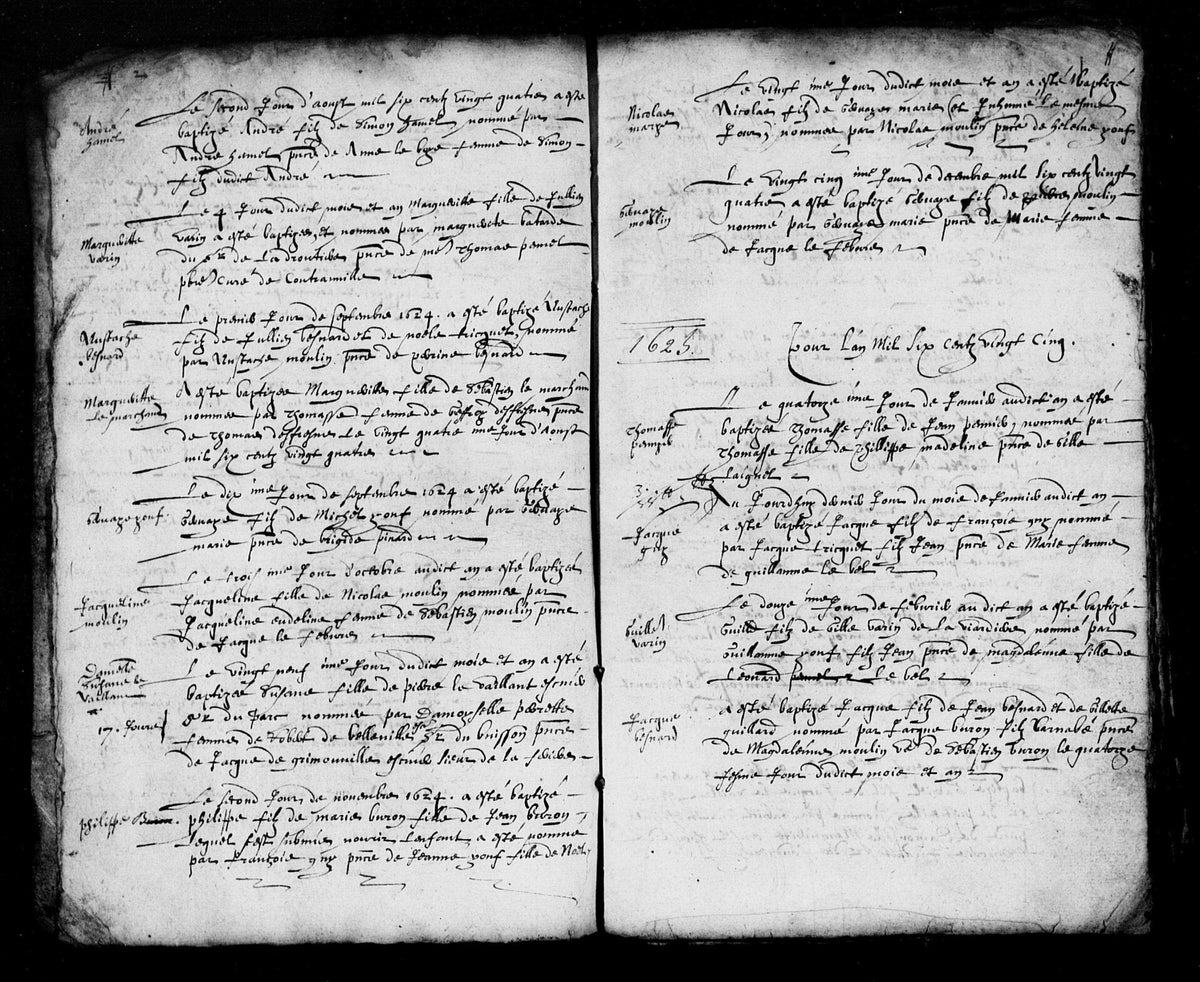 André
hamel
Le second Jour d'aoust mil six centz vingt quatre a esté
baptizé André filz de Simon hamel nommé par
André hamel pnce de Anne le femme de Simon
filz dudict André
Margueritte
varin
Le 4 Jour dudict mois et an Margueritte fille de Jullien
varin a esté baptizee et nommee par marguerite batarde
du sr de pnce de me Thomas pemel
pbre Curé de Contrainville
Eustache
besnard
Le premier Jour de septembre 1624. a esté baptizé Eustache
filz de Jullien besnard et de noele tricquet, nommé
par Eustache moulin pnce de perine besnard
Margueritte
le marchant
A esté baptizee Margueritte fille de Sébastien le marchant
nommee par Thomasse femme de pnce
de Thomas le vingt quatre ime Jour d'Aoust
mil six centz vingt quatre
Gervaze youf.
Le dix ime Jour de septembre 1624 a esté baptizé
Gervaze filz de Michel youf nommé par Gervaze
marie pnce de brigide pinard
Jacqueline
moulin
Le trois ime Jour d'octobre audict an a esté baptizee
Jacqueline fille de Nicolas moulin nommée par
Jacqueline eudeline femme de Sébastien moulin pnce
de Jacque le febvre
Damelle
Susane le
Vaillant
Le vingt neuf ime Jour dudict mois et an a esté
baptizee Susane fille de pierre le vaillant escuier
sr du parc nommée par Damoyselle perrette
femme de Robert de belleville sr du buisson pnce
de Jacque de grimouville escuier sieur de la
philippe Buron.
Le second Jour de novembre 1624. a esté baptizé
philippe filz de marie buron fille de Jean buron
lequel s'est submis nourir lenfant a esté nommé
par françois guy pnce de Jeanne youf fille de Noel
Nicolas
marye
Le vingt ime Jour dudict mois et an a esté baptizé
Nicolas filz de Gervaze marie (et Inhumé le mesme
Jour) nommee par Nicolas moulin pnce de helene youf
Gervaze
moulin
Le vingt cinq ime Jour de decembre mil six centz vingt
quatre a esté baptizé Gervaze filz de moulin
nommé par Gervaze marie pnce de Marie femme
de Jacque le febvre
1625.
Pour Lan Mil Six Centz Vingt Cinq.
Thomasse
Le quatorze ime Jour de Janvier audict an a esté
baptizée Thomasse fille de Jean nommee par
Thomasse fille de Phillippe madeline pnce de Gille
Laignel
Jacque
guy
Au Jourdhuy dernier Jour du mois de Janvier audict an
a esté baptizé Jacque filz de françois guy nommé
par Jacque tricquet filz Jean pnce de Marie femme
de guillaume le bel
Guille
varin
Le douze ime Jour de febvrier audict an a esté baptizé
Guille filz de Gille varin de la viardière nommé par
Guillaume youf filz Jean pnce de magdaleine fille de
Leonard le bel
Jacque
besnard
A esté baptizé Jacque filz de Jean besnard et de Gillette
guillard nommé par Jacque buron filz barnabé pnce
de Magdaleine moulin ve de Sébastien buron le quatorze
iesme Jour dudict mois et an